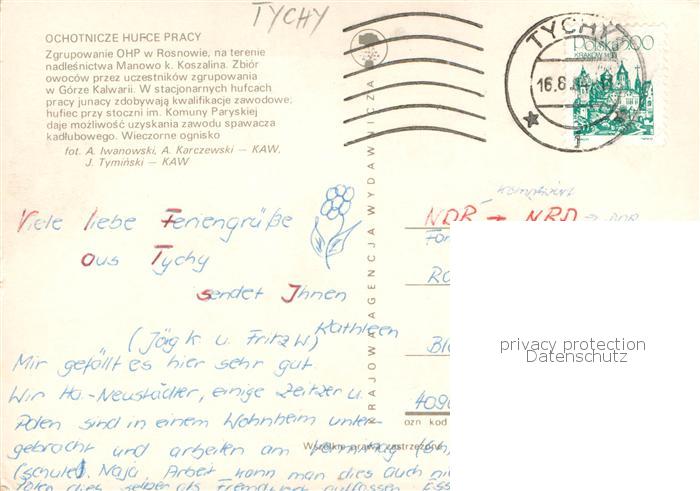 TYCHY
OCHOTNICZE HUFCE PRACY
Zgrupowanie OHP w Rosnowie, na terenie
nadleśnictwa Manowo k. Koszalina. Zbiór
owoców przez uczestników zgrupowania
w Górze Kalwarii. W stacjonarnych hufcach
pracy junacy zdobywają kwalifikacje zawodowe;
hufiec przy stoczni im. Komuny Paryskiej
daje możliwość uzyskania zawodu spawacza
kadłubowego. Wieczorne ognisko
fot. A. Iwanowski, A. Karczewski — KAW,
J. Tymiński — KAW
KRAJOWA AGENCJA WYDAWNICZA
TYCHY
16.8
Polska 500
KRAKÓW
Viele liebe Feriengrüße
aus Tychy
sendet Ihnen
Kathleen
(Jörg K. u. Fritz W)
Mir gefällt es hier sehr gut.
Wir Ha-Neustädter, einige Zeitzer u.
Polen sind in einem Wohnheim unter-
gebracht und arbeiten am
(schule). Naja, Arbeit kann man dies auch
NDR → NRD → DDR
409
ozn kod
Wszelkie prawa zastrzeżone
privacy protection
Datenschutz